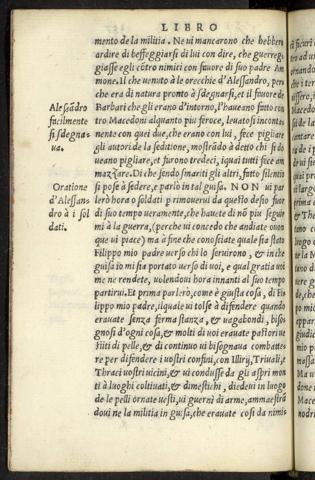 LIBRO
mento de la militia. Ne ui mancarono che hebbero
ardire di beffeggiarsi di lui con dire, che guerreg-
giasse egli cõtro i nimici con fauore di suo padre Am
mone. Il che uenuto à le orecchie d'Alessandro, per-
che era di natura pronto à sdegnarsi, et il fauore de
Barbari che gli erano d'intorno, l'haueano fatto con
tro Macedoni alquanto piu feroce, leuatosi incontanente
mente con quei due, che erano con lui, fece pigliare
gli autori de la seditione, mostrãdo à detto chi si do
ueano pigliare, et furono tredeci, i quai tutti fece am
mazzare. Di che sendo smariti gli altri, fatto silentio
si pose à sedere, e parlò in tal guisa. NON ui par
lerò hora o soldati p rimouerui da questo desio fuor
di suo tempo ueramente, che hauete di nõ piu seguir
mi à la guerra, (perche ui concedo che andiate ouun
que ui piace) ma à fine che conosciate quale sia stato
Filippo mio padre uerso chi lo seruirono, & in che
guisa io mi sia portato uerso di uoi, e qual gratia uoi
me ne rendete, uolendoui hora innanti al suo tempo
partirui. Et prima parlerò, come è giusta cosa, di Fi
lippo mio padre, il quale ui tolse à difendere quando
erauate senza ferma stanza, & uagabondi, biso
gnosi d'ogni cosa, & molti di uoi erauate pastori ue
stiti di pelle, & di continuo ui bisognaua combatte-
re per difendere i uostri confini, con Illirij, Triuali, e
Thraci uostri uicini, & ui condusse da gli aspri mon
ti à luoghi coltiuati, & dimestichi, diedeui in luogo
de le pelli ornate uesti, ui guernì di arme, ammaestrã
doui ne la militia in guisa, che erauate cosi da nimi-
Alesãdro
facilmente
si sdegna-
ua.
Oratione
d'Alessan-
dro à i sol
dati.